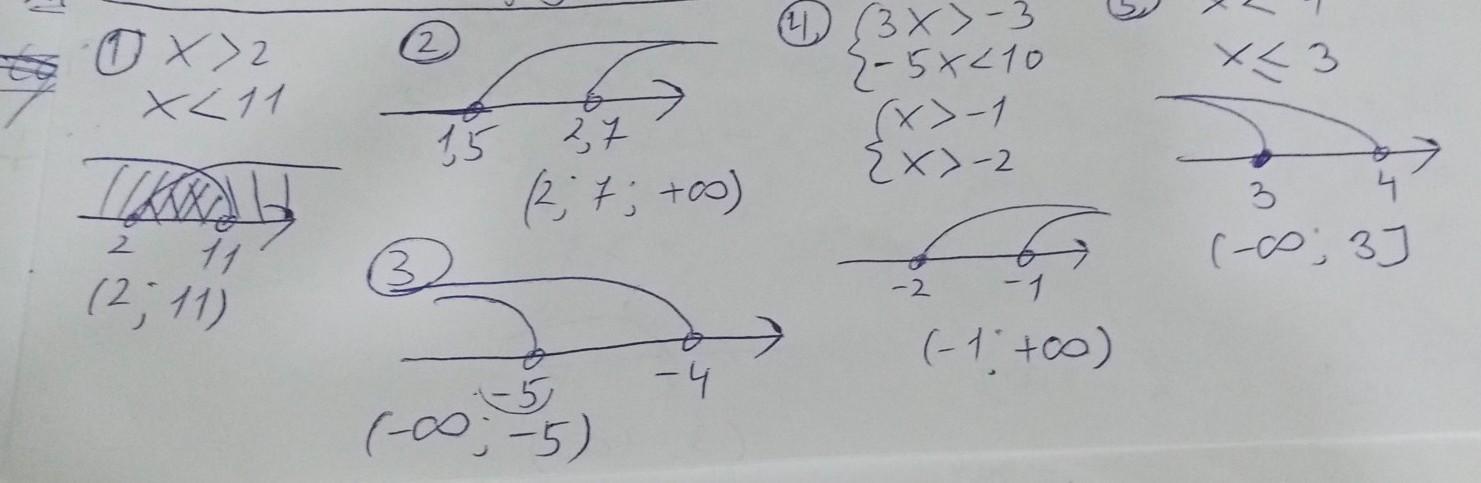 ① x>2
x<11
2 11
(2; 11)
②
1,5 2,7
(2; 7; +∞)
③
-5 -4
(-∞; -5)
④ {3x>-3
{-5x<10
{x>-1
{x>-2
-2 -1
(-1; +∞)
x≤3
3 4
(-∞; 3]